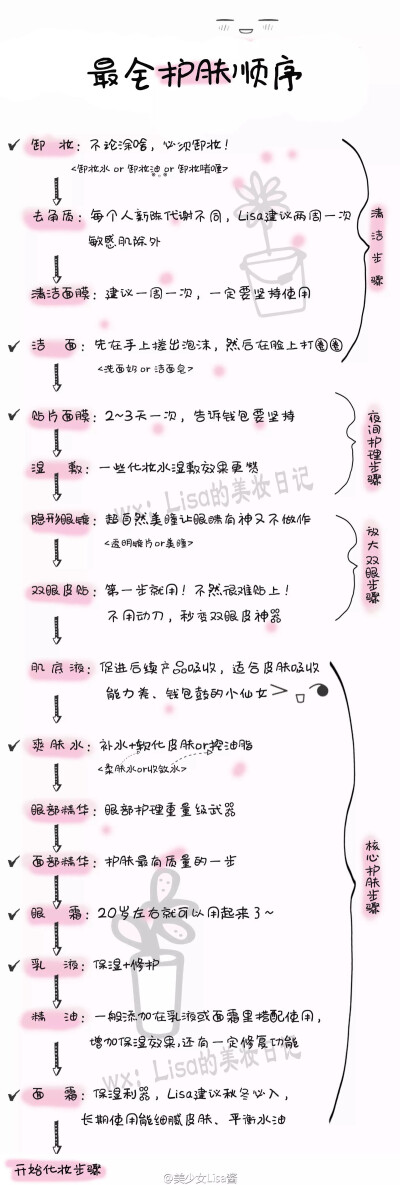 最全护肤顺序
✓ 卸 妆：不论涂啥，必须卸妆！
<卸妆水 or 卸妆油 or 卸妆啫喱>
去角质：每个人新陈代谢不同，Lisa建议两周一次
敏感肌除外
清洁面膜：建议一周一次，一定要坚持使用
✓ 洁 面：先在手上搓出泡沫，然后在脸上打圈圈
<洗面奶 or 洁面皂>
清洁步骤
✓ 贴片面膜：2~3天一次，告诉钱包要坚持
湿 敷：一些化妆水湿敷效果更赞
夜间护理步骤
wx：Lisa的美妆日记
隐形眼睛：超自然美瞳让眼睛有神又不做作
<透明睛片or美瞳>
双眼皮贴：第一步就用！不然很难贴上！
不用动刀，秒变双眼皮神器
放大双眼步骤
肌底液：促进后续产品吸收，适合皮肤吸收
能力差、钱包鼓的小仙女
✓ 爽肤水：补水+软化皮肤or控油脂
<柔肤水or收敛水>
眼部精华：眼部护理重量级武器
✓ 面部精华：护肤最有质量的一步
✓ 眼 霜：20岁左右就可以用起来了~
✓ 乳 液：保湿+修护
精 油：一般添加在乳液或面霜里搭配使用，
增加保湿效果,还有一定修复功能
wx：Lisa的美妆日记
✓ 面 霜：保湿利器，Lisa建议秋冬必入，
长期使用能细腻皮肤、平衡水油
核心护肤步骤
开始化妆步骤
@美少女Lisa酱